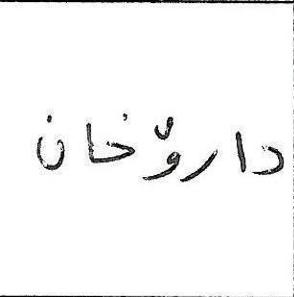 داروٚخان